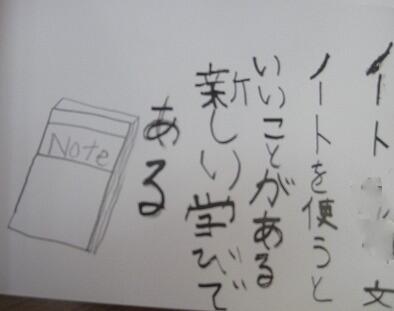 ノート 文
ノートを使うと
いいことがある
新しい学びで
ある
Note